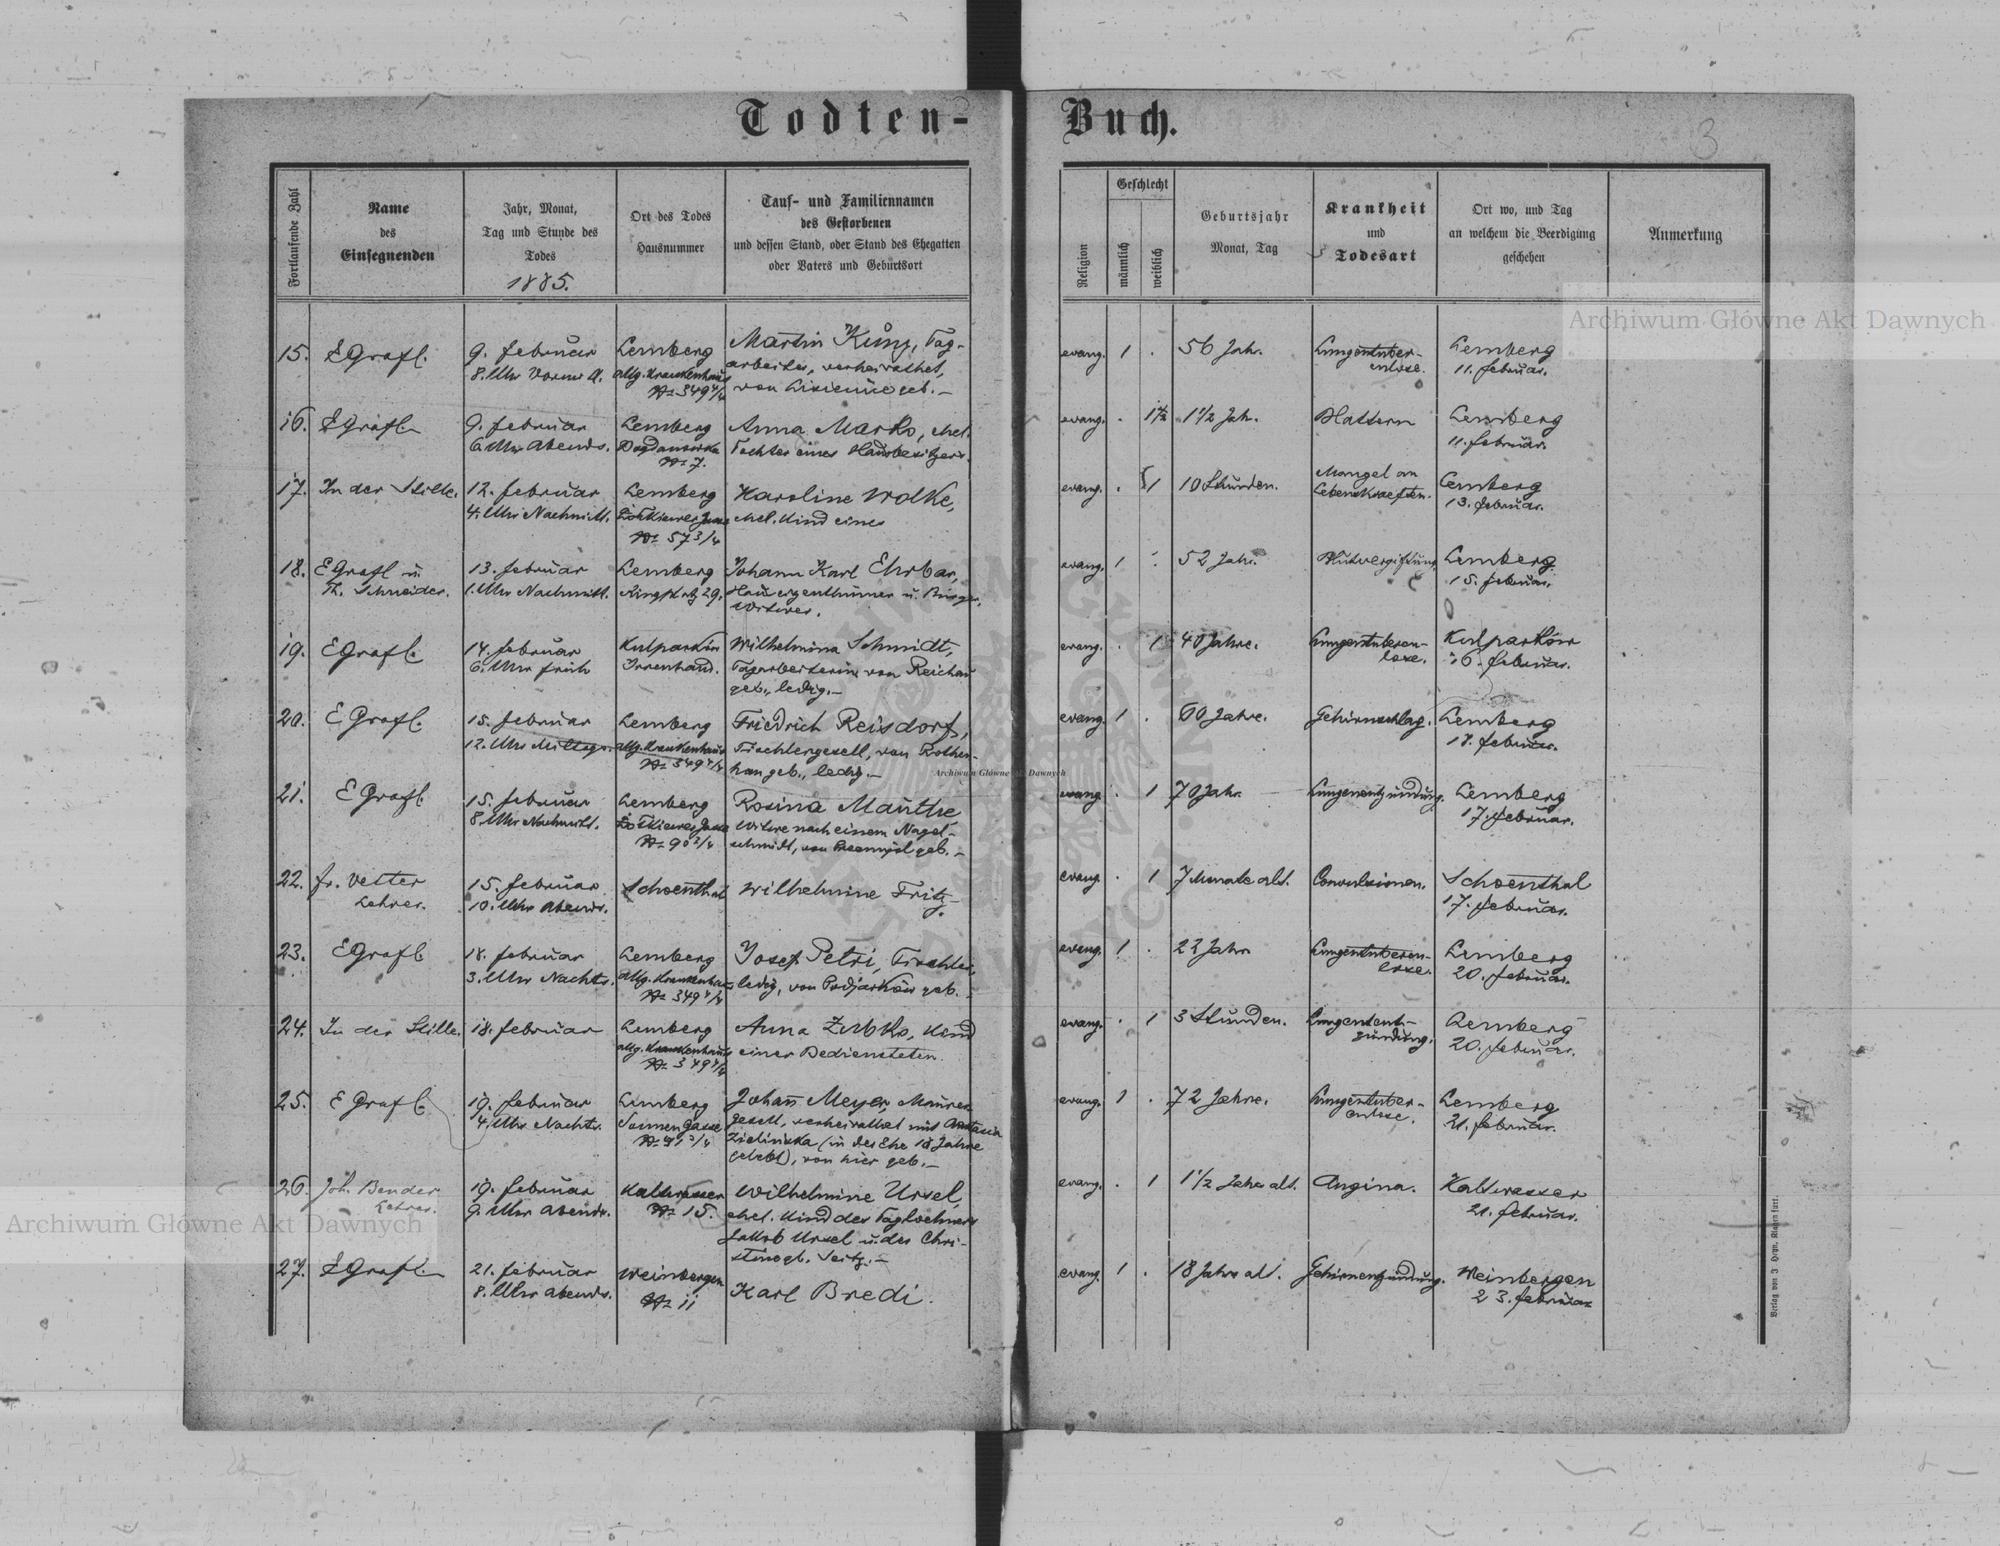 Todten-Buch.
3
Fortlaufende Zahl
Name
des
Einsegnenden
Jahr, Monat,
Tag und Stunde des
Todes
1885.
Ort des Todes
Hausnummer
Tauf- und Familiennamen
des Gestorbenen
und dessen Stand, oder Stand des Ehegatten
oder Vaters und Geburtsort
Religion
Geschlecht
männlich
weiblich
Geburtsjahr
Monat, Tag
Krankheit
und
Todesart
Ort wo, und Tag
an welchem die Beerdigung
geschehen
Anmerkung
15. EGrafl.
9. Februar
8. Uhr Vorm
Lemberg
allg. Krankenhaus
№ 349 1/4
Martin Küng, Tag-
arbeiter, verheirathet,
von geb.-
evang. 1 .
56 Jahr.
Lungentuber-
culose.
Lemberg
11. Februar.
16. EGrafl.
9. Februar
6. Uhr Abends.
Lemberg
Bogdanowka
№ 7.
Anna Marko, ehel.
Tochter eines Hausbesitzers.
evang. . 1
1 1/2 Jah.
Blattern
Lemberg
11. Februar.
17. In der Stille.
12. Februar
4. Uhr Nachmitt.
Lemberg
Zolkiewer Gasse
№ 57 3/4
Karoline Wolke,
ehel. Kind eines
evang. . 1
10 Stunden.
Mangel an
Lebenskraeften.
Lemberg
13. Februar.
18. EGrafl u.
Th. Schneider.
13. Februar
1. Uhr Nachmitt.
Lemberg
Ringplatz 29.
Johann Karl Ehrbar,
Hauseigenthümer u. Bürger,
Witwer.
evang. 1 .
52 Jahr.
Blutvergiftung
Lemberg
15. Februar.
19. EGrafl.
14. Februar
6. Uhr früh
Kulparkow
Irrenhaus.
Wilhelmina Schmidt,
Tagarbeiterin von Reichau
geb., ledig.-
evang. . 1
40 Jahre.
Lungentubercu-
lose.
Kulparkow
16. Februar.
20. EGrafl.
15. Februar
12. Uhr Mittags.
Lemberg
allg. Krankenhaus
№ 349 1/4
Friedrich Reisdorf,
Tischlergesell, von Rothen-
han geb., ledig.-
evang. 1 .
60 Jahre.
Gehirnschlag.
Lemberg
17. Februar.
21. EGrafl.
15. Februar
8. Uhr Nachmitt.
Lemberg
Zolkiewer Gasse
№ 90 2/4
Rosina Mauthe
Witwe nach einem Nagel-
schmidt, von Przemysl geb.-
evang. . 1
70 Jahr.
Lungenentzündung.
Lemberg
17. Februar.
22. Fr. Vetter
Lehrer.
15. Februar
10. Uhr Abends.
Schoenthal
Wilhelmine Fritz.
evang. . 1
7 Monate alt.
Convulsionen.
Schoenthal
17. Februar.
23. EGrafl.
18. Februar
3. Uhr Nachts.
Lemberg
allg. Krankenhaus
№ 349 1/4
Josef Petri, Tischler,
ledig, von Podjarkow geb.-
evang. 1 .
22 Jahr
Lungentubercu-
lose.
Lemberg
20. Februar.
24. In der Stille.
18. Februar
Lemberg
allg. Krankenhaus
№ 349 1/4
Anna Zubko, Kind
einer Bediensteten.
evang. . 1
3 Stunden.
Lungenent-
zündung.
Lemberg
20. Februar.
25. EGrafl.
19. Februar
4. Uhr Nachts.
Lemberg
Sonnen Gasse
Johann Meyer, Maurer
gesell, verheirathet mit Anastasia
Zielinska (in der Ehe 18 Jahre
gelebt), von hier geb.-
evang. 1 .
72 Jahre.
Lungentuber-
culose.
Lemberg
21. Februar.
26. Joh. Bender
Lehrer.
19. Februar
9. Uhr Abends.
Kaltwasser
№ 15.
Wilhelmine Ursel,
ehel. Kind des Tagloehners
Jakob Ursel u. der Chri-
stine gb. Seitz.-
evang. . 1
1 1/2 Jahr alt.
Angina.
Kaltwasser
21. Februar.
27. EGrafl.
21. Februar
8. Uhr Abends.
Weinbergen
№ 11
Karl Bredi.
evang. 1 .
18 Jahre alt.
Gehirnentzündung.
Weinbergen
23. Februar
Verlag von J Heyn, Klagenfurt.
Archiwum Główne Akt Dawnych
Archiwum Główne Akt Dawnych
Archiwum Główne Akt Dawnych